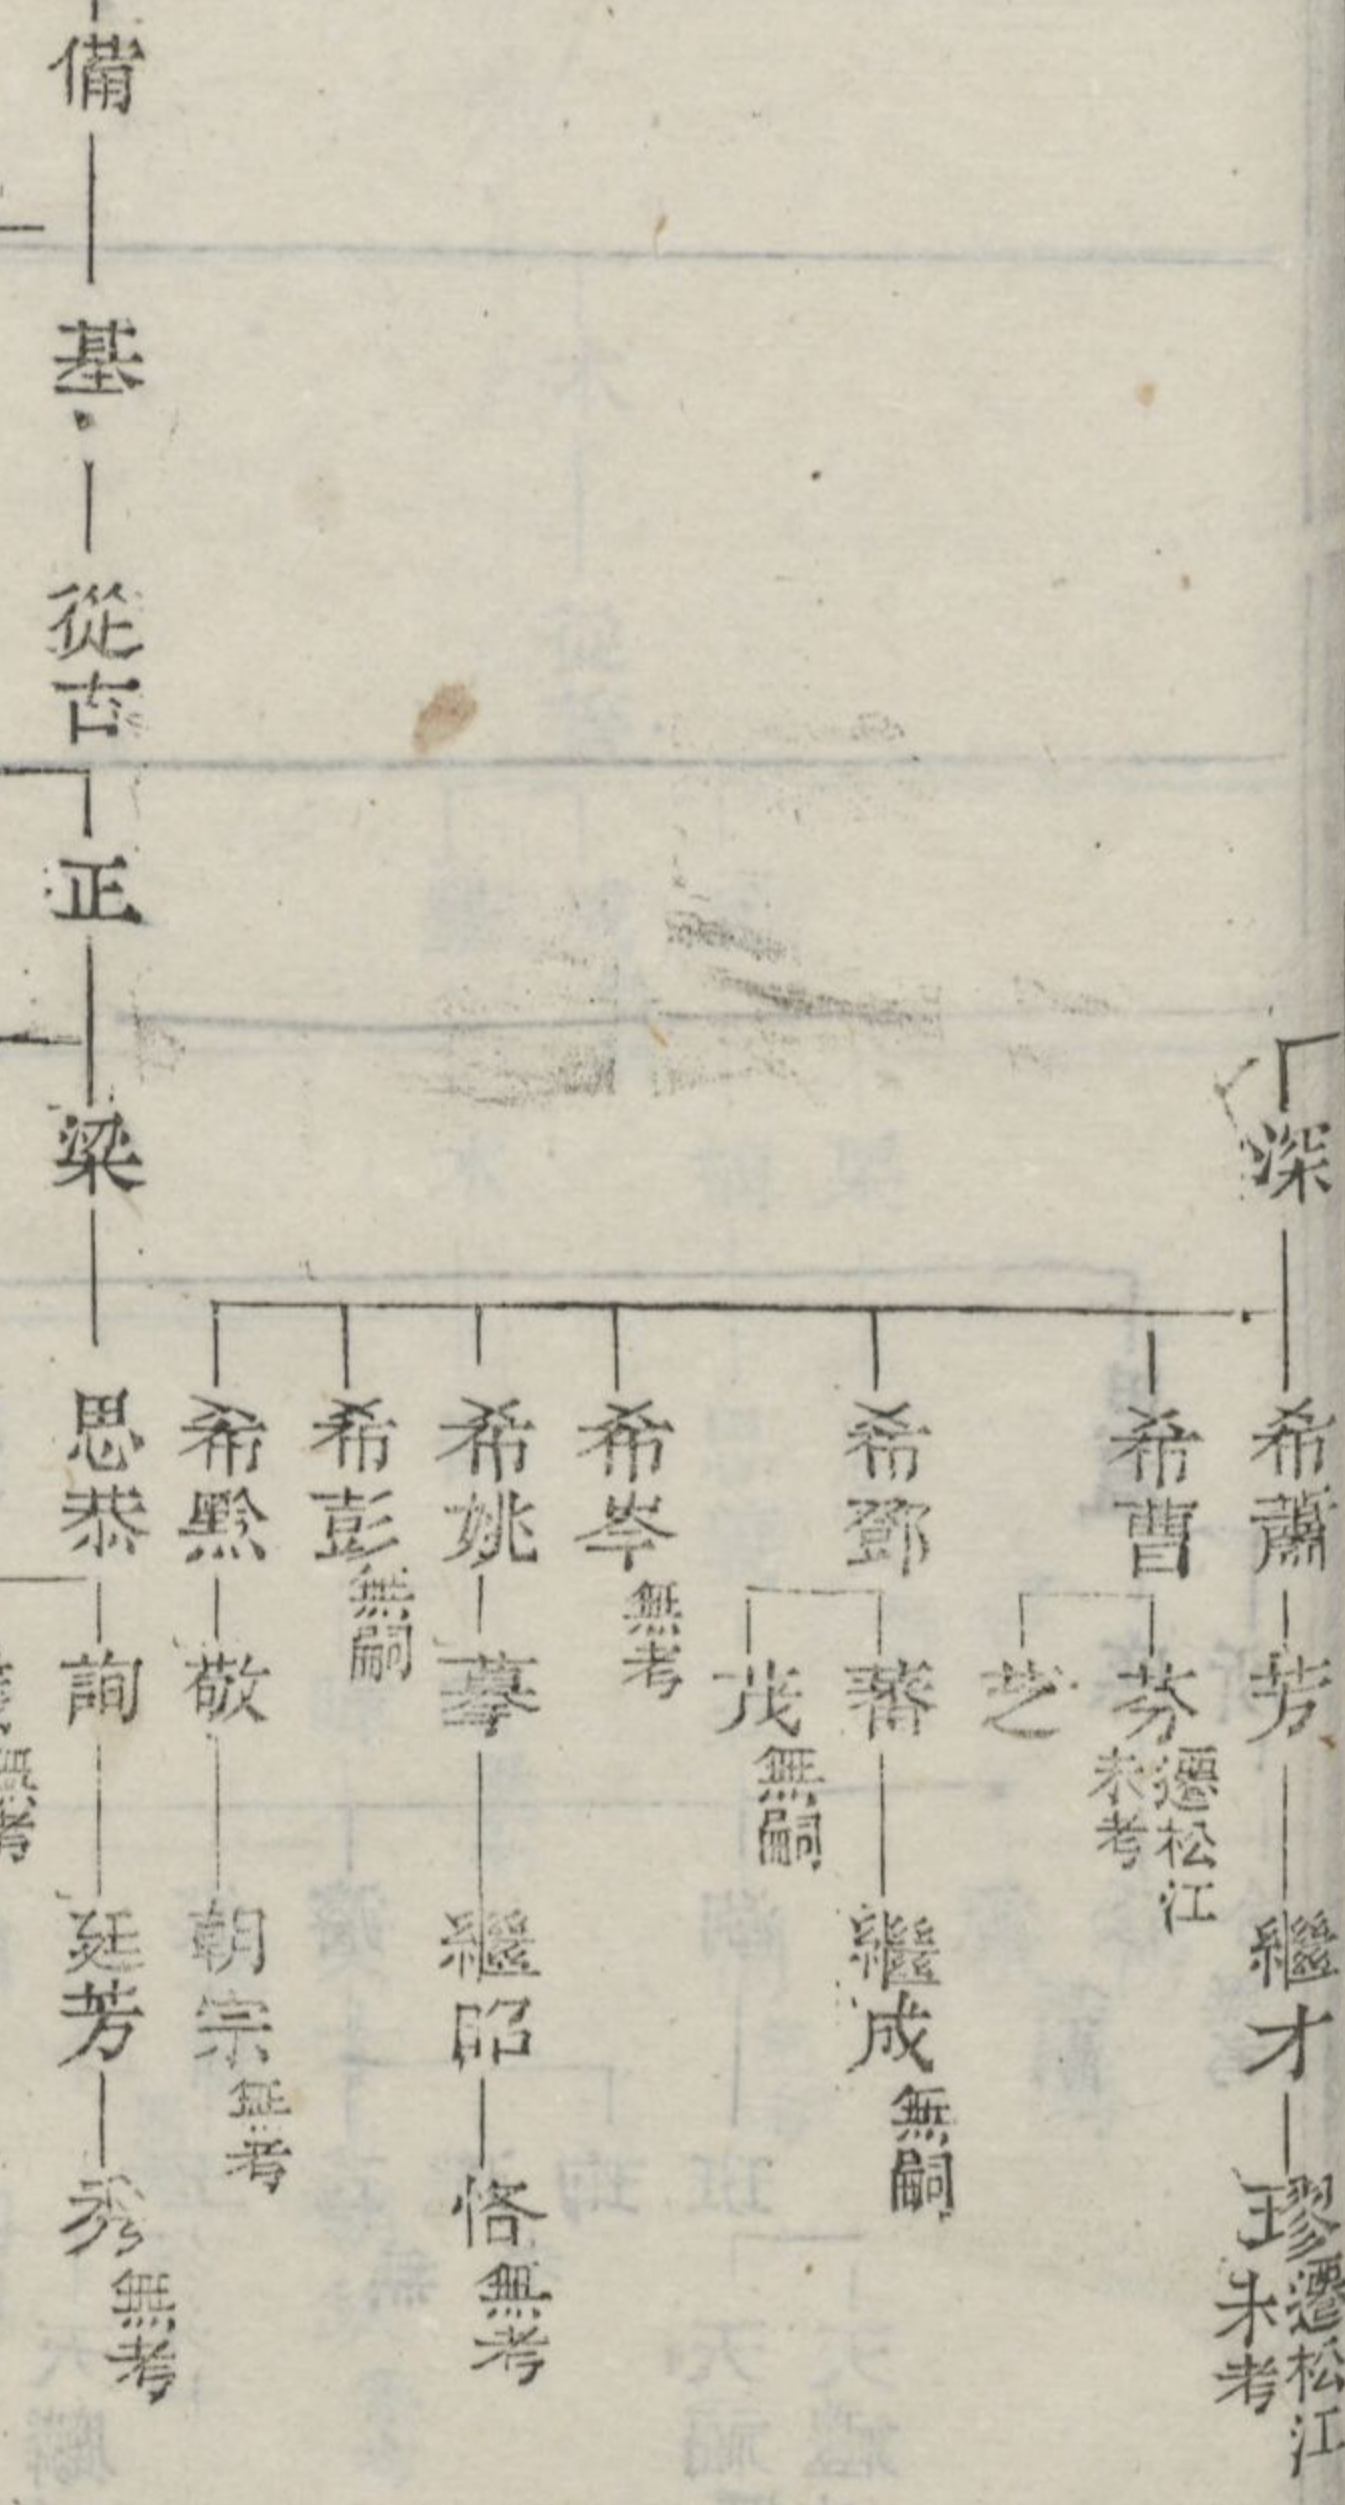 深
希蕭
芳
繼才
璆
遷松江
未考
希曹
芬
遷松江
未考
芝
希鄧
蕃
繼成
無嗣
茂
無嗣
希岑
無考
希姚
摹
繼昭
恪
無考
希彭
無嗣
希黔
敬
朝宗
無考
備
基
從古
正
梁
思恭
詢
廷芳
秀
無考
無考